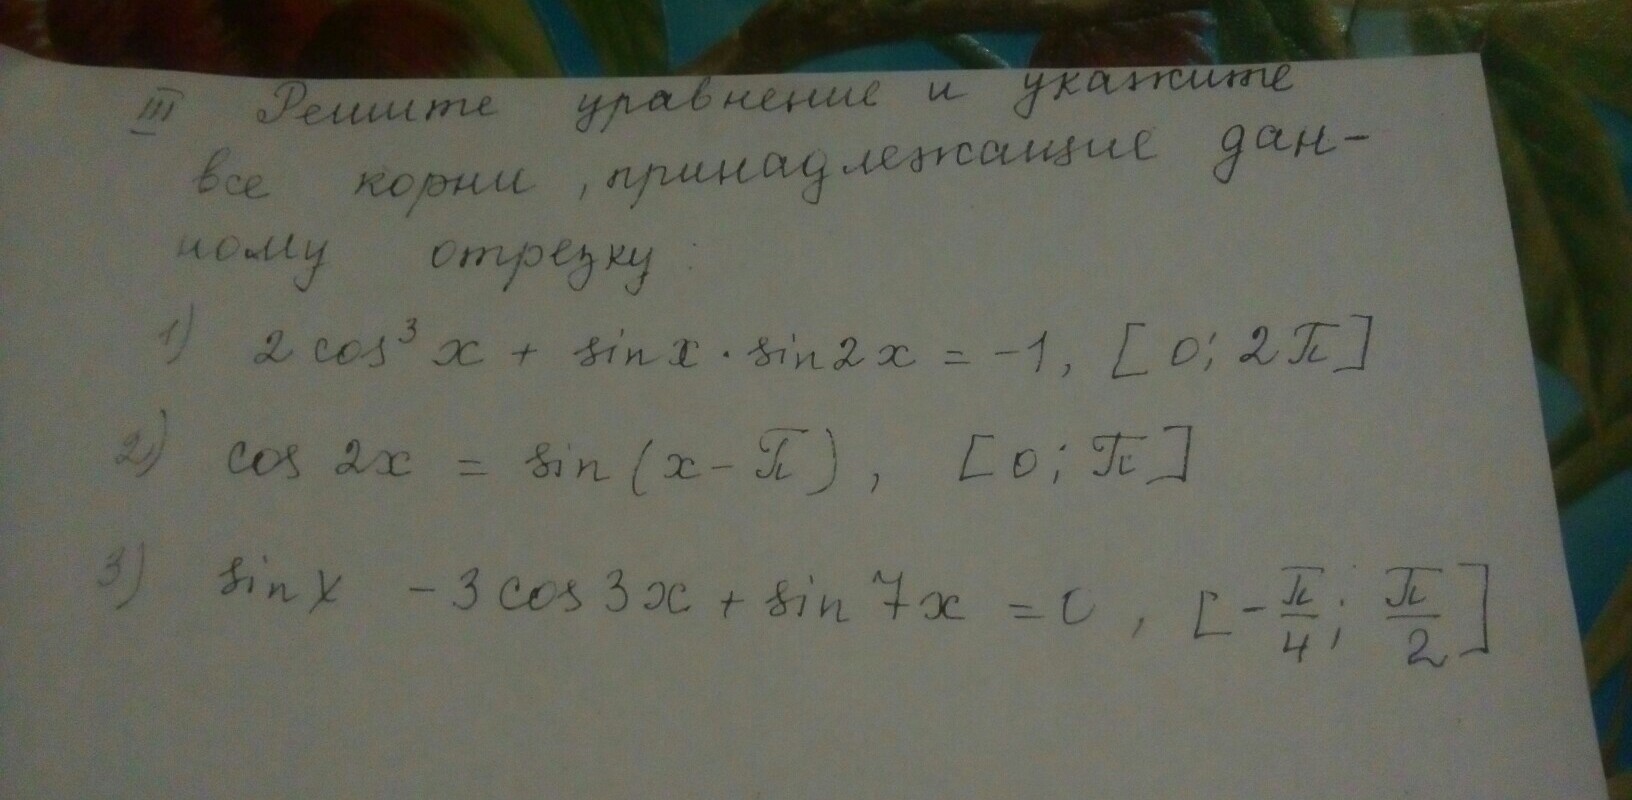 III Решите уравнение и укажите
все корни, принадлежащие дан-
ному отрезку:
1) 2 cos³ x + sin x · sin 2x = -1, [0; 2π]
2) cos 2x = sin (x - π), [0; π]
3) sin x - 3 cos 3x + sin 7x = 0, [-π/4; π/2]